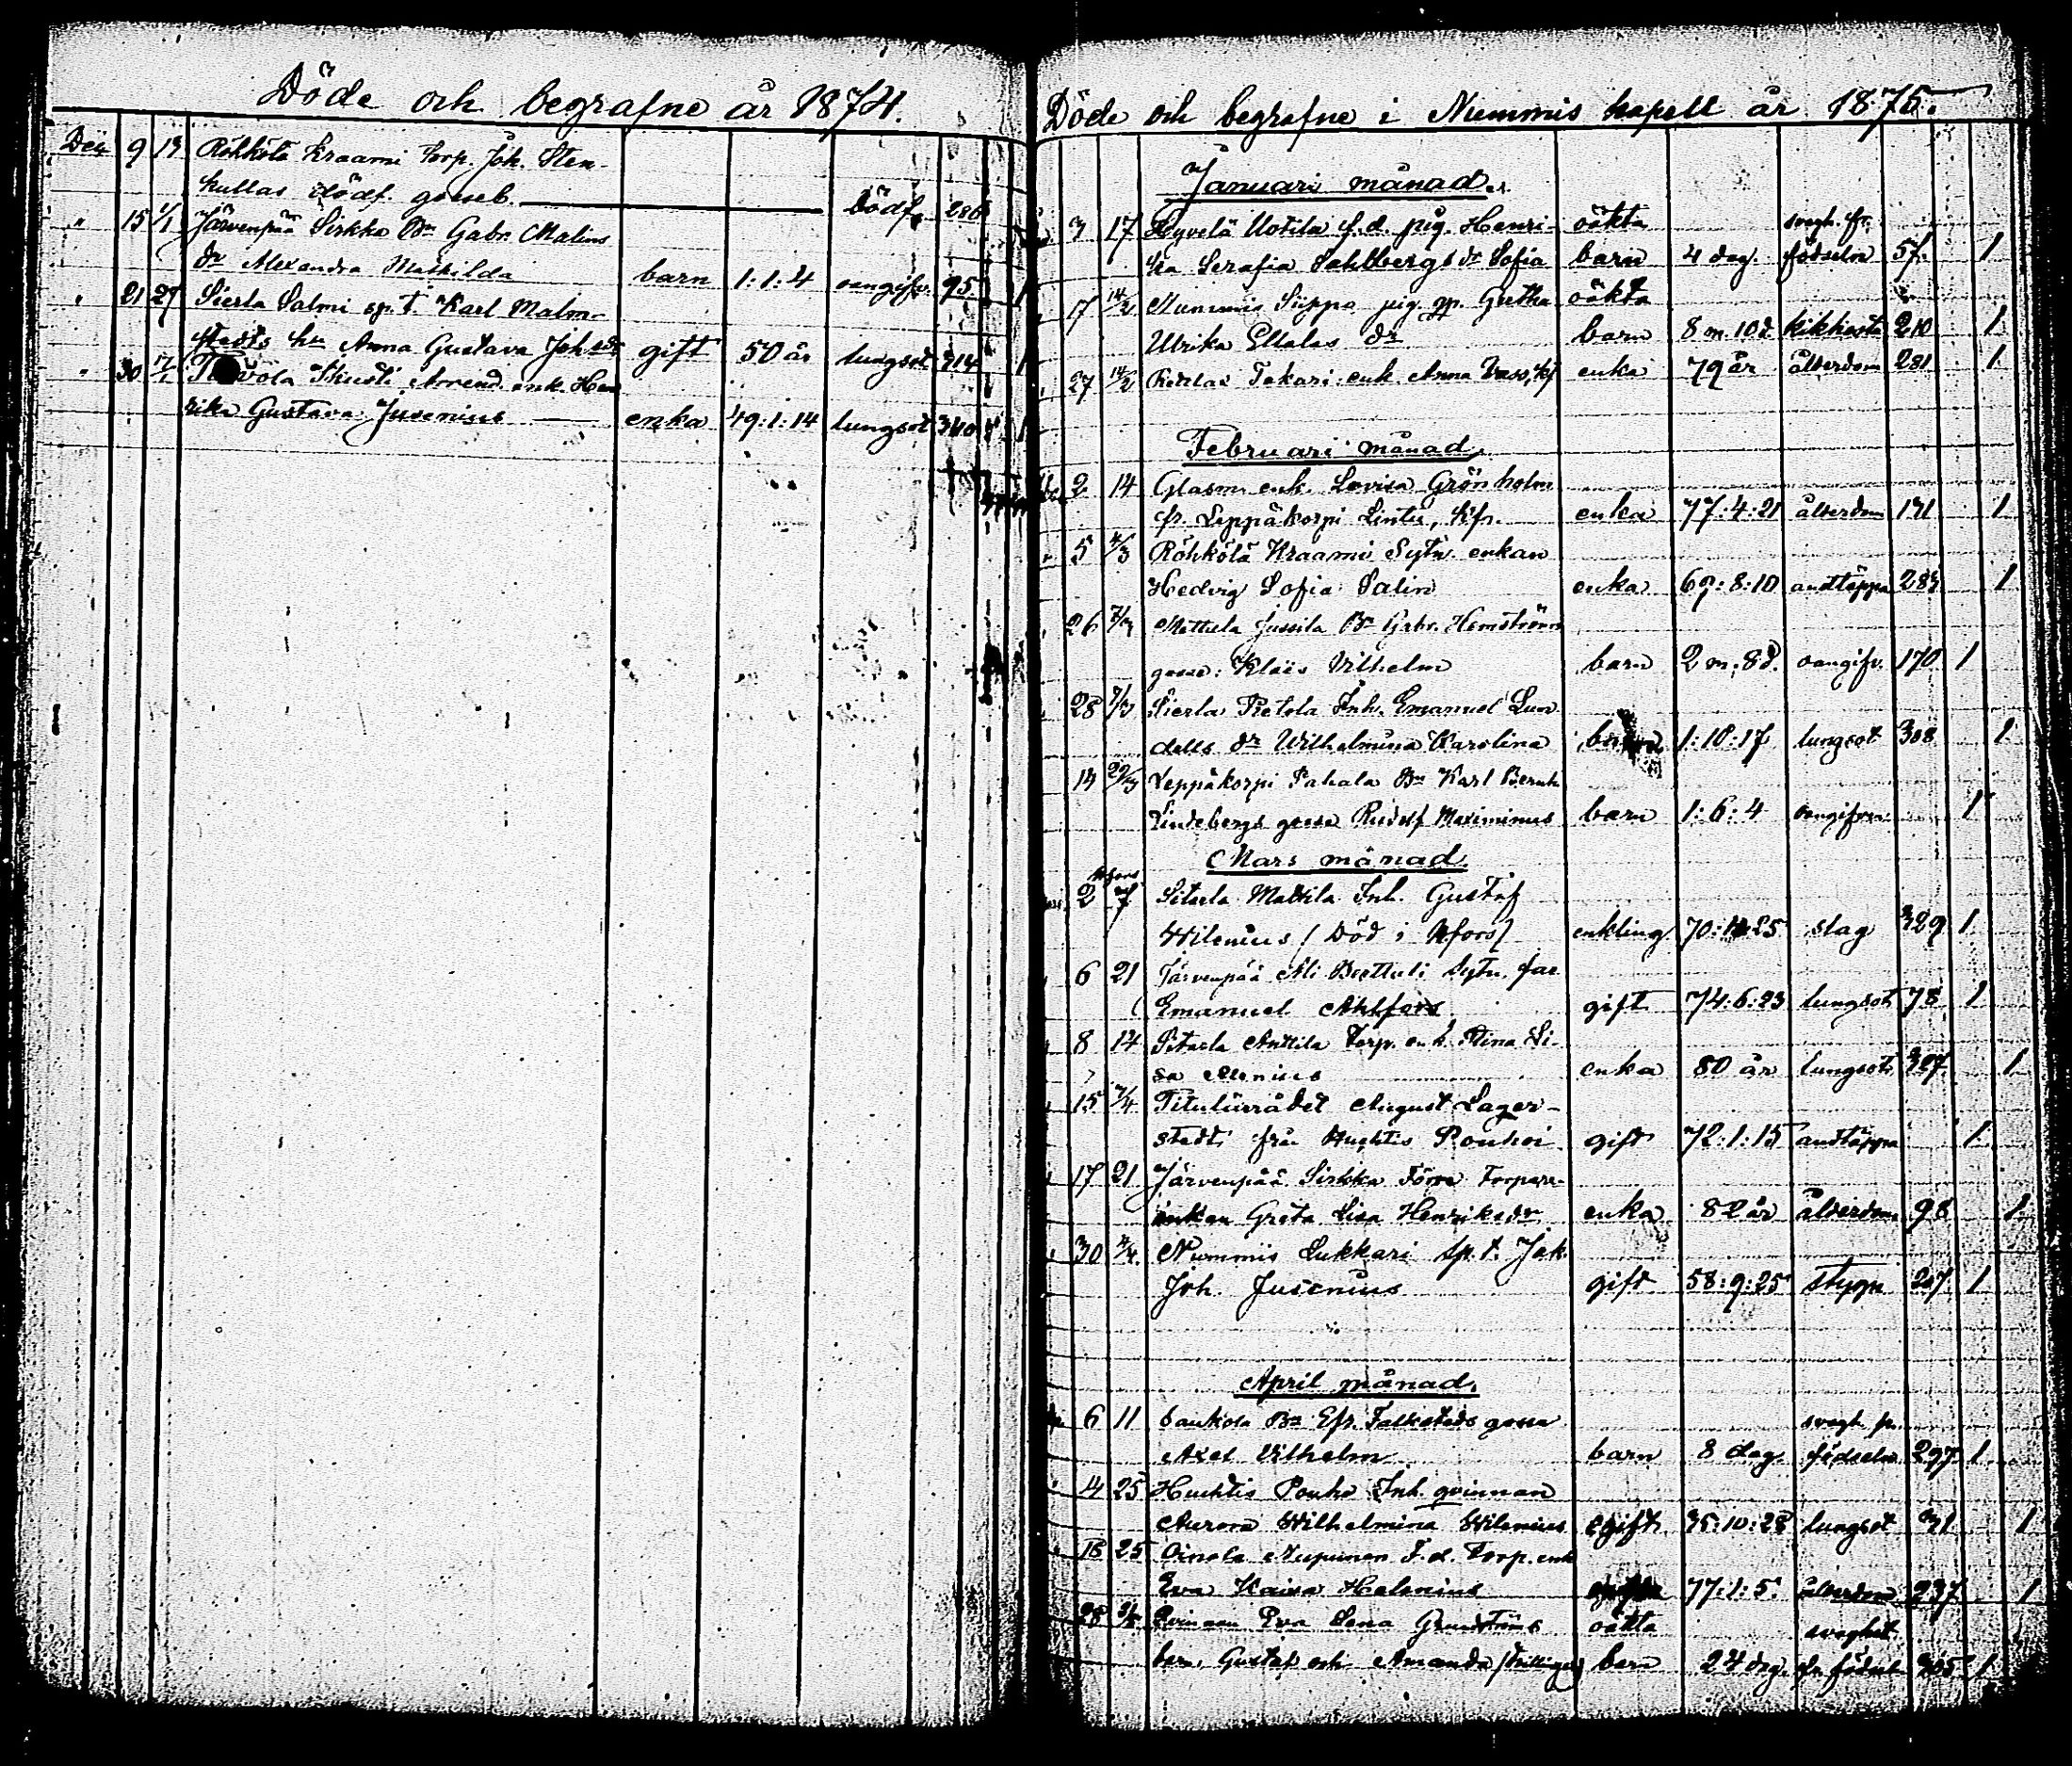 Döde och begrafne år 1874.
Dec 9 13 Röhkölä Kraami Torp. Joh. Sten-
kullas dödf. gosseb. Dödf. 286
" 15 1/1 Järvenpää Sirkka Bn Gabr. Malins
dr Alexandra Mathilda barn 1:1:4 oangifv. 95 1
" 21 27 Sierla Salmi sp.t. Karl Malm-
stedts hu Anna Gustava Johsdr gift 50 år lungsot 314 1
" 30 17/1 Skusti Arrend. enk. Hen
rika Gustava Jusenius enka 49:1:14 lungsot 340 1
Döde och begrafne i Nummis kapell år 1875.
Januari månad.
3 17 Hyvelä Uotila f.d. pig. Henri- oäkta svagh. fr.
ka Serafia Sahlbergs dr Sofia barn 4 dag. födseln 57. 1
17 14/2 Nummis Seppä pig. Gretha oäkta
Ulrika Ellalas dr barn 8 m. 10 d. kikhosta 210 1
27 14/2 Retlas Takari enk. Anna enka 79 år ålderdom 281 1
Februari månad.
2 14 Glasm. enk. Lovisa Grönholm
fr. Leppäkorpi Lintu, Kfr. enka 77:4:21 ålderdom 131 1
5 4/3 Röhkölä Kraami Sytn. enkan
Hedvig Sofia Salin enka 69:8:10 andtäppa 283 1
26 7/3 Mettula Jussila Bn Gabr. Hemströms
gosse: Klais Vilhelm barn 2 m. 8 d. oangifv. 170 1
28 7/3 Sierla Pietola Inh. Emanuel Lun
dells dr Wilhelmina Karolina barn 1:10:17 lungsot 308 1
13 29/3 Leppäkorpi Pahala Bn Karl Bernh
Lindebergs gosse Rudolf Maximinus barn 1:6:4 oangifven 1
Mars månad.
Hfors
2 7 Sitarla Mattila Inh. Gustaf
Wilenius (Död i Hfors) enkling 70: :25 slag 329 1
6 21 Järvenpää Ali Berttuli Sytn. far
Emanuel Ahlfors gift 74:6:23 lungsot 78 1
8 14 Sitarla Anttila Torp. enk. Stina Li-
sa Alenius enka 80 år lungsot 327 1
15 7/4 Titulärrådet August Lager-
stedt från Huhtis Ponhoi gift 72:1:15 andtäppa 1
17 21 Järvenpää Sirkka Förra Torpare-
enkan Greta Lisa Henriksdr enka 82 år ålderdom 98 1
30 4/4 Nummis Lukkari Sp.t. Jak.
Joh. Jusenius gift 58:9:25 stygn 207 1
April månad.
6 11 Saukola Bn Efr. Falkstedts gosse svagh. fr.
Axel Vilhelm barn 8 dag. födseln 297 1
4 25 Huhtis Ponho Inh. qvinnan
Aurora Wilhelmina Wilenius ogift 35:10:28 lungsot 31 1
18 25 Oinola Nupunen F.d. Torp. enk
Eva Kaisa Helenius 77:1:5 ålderdom 237 1
28 Qvinnan Eva Lena Grundströms oäkta svaghet
barn, Gustaf och Amanda (trillingar) barn 24 dag. fr. födsel 305 1